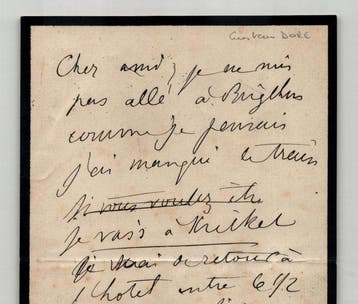 Gustave DORÉ
Cher ami, je ne suis
pas allé à Brighton
comme je pensais
j'ai manqué le train
si vous voulez être
je vais à
je serai de retour à
l'hotel entre 6 1/2